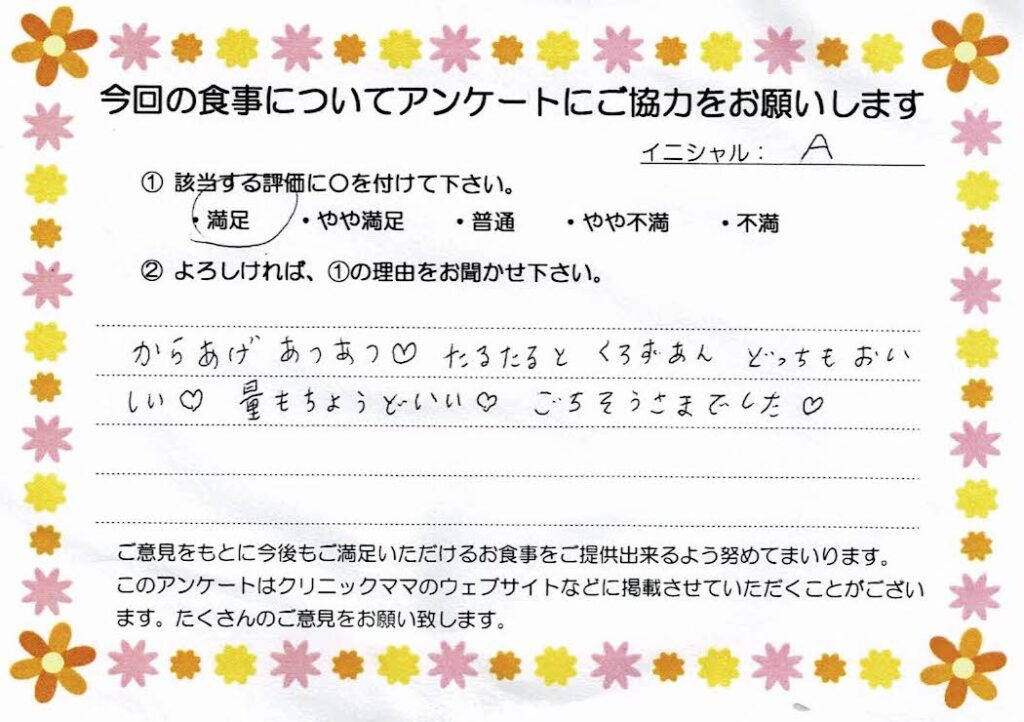 今回の食事についてアンケートにご協力をお願いします
イニシャル： A
① 該当する評価に〇を付けて下さい。
・満足 ・やや満足 ・普通 ・やや不満 ・不満
② よろしければ、①の理由をお聞かせ下さい。
からあげ あつあつ♡ たるたると くろずあん どっちも おい
しい♡ 量もちょうどいい♡ ごちそうさまでした♡
ご意見をもとに今後もご満足いただけるお食事をご提供出来るよう努めてまいります。
このアンケートはクリニックママのウェブサイトなどに掲載させていただくことがござい
ます。たくさんのご意見をお願い致します。